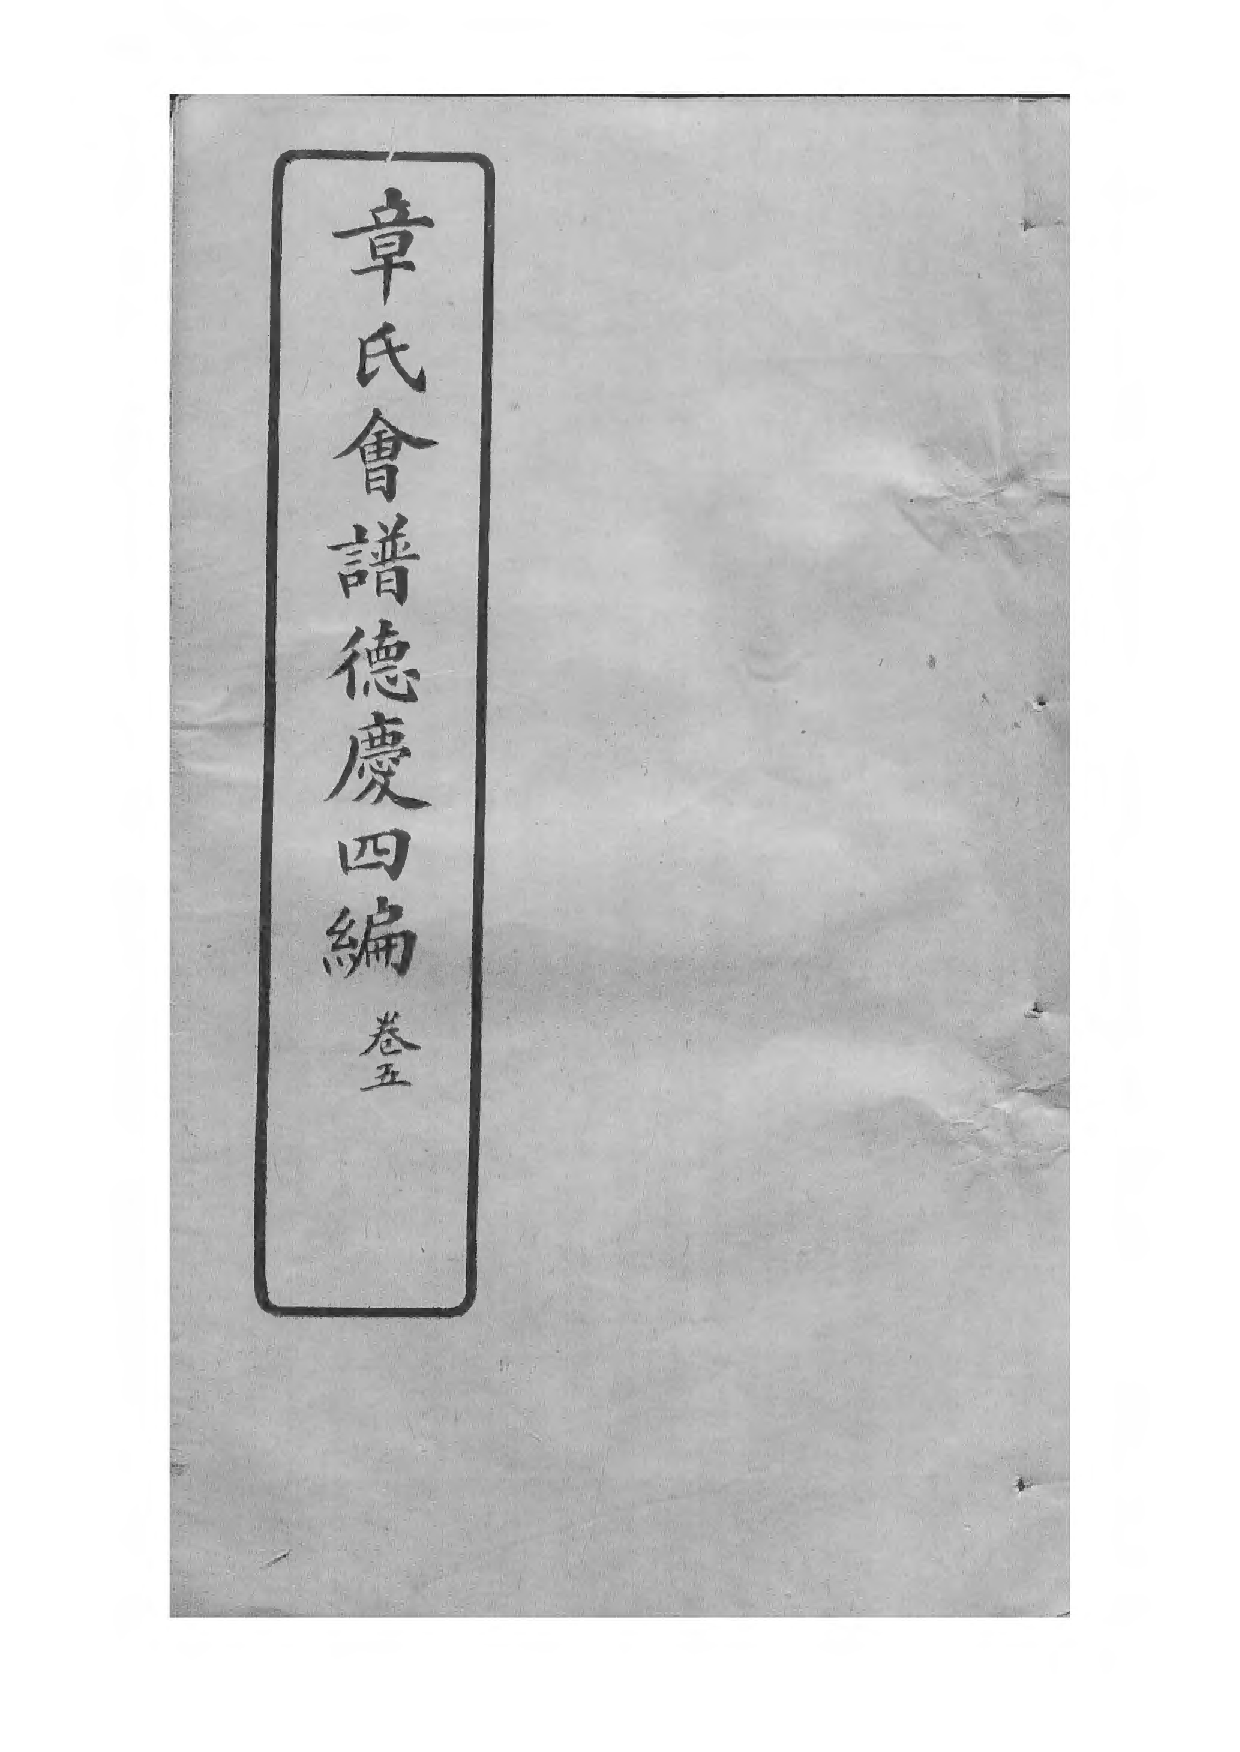 章氏會譜德慶四編 卷五